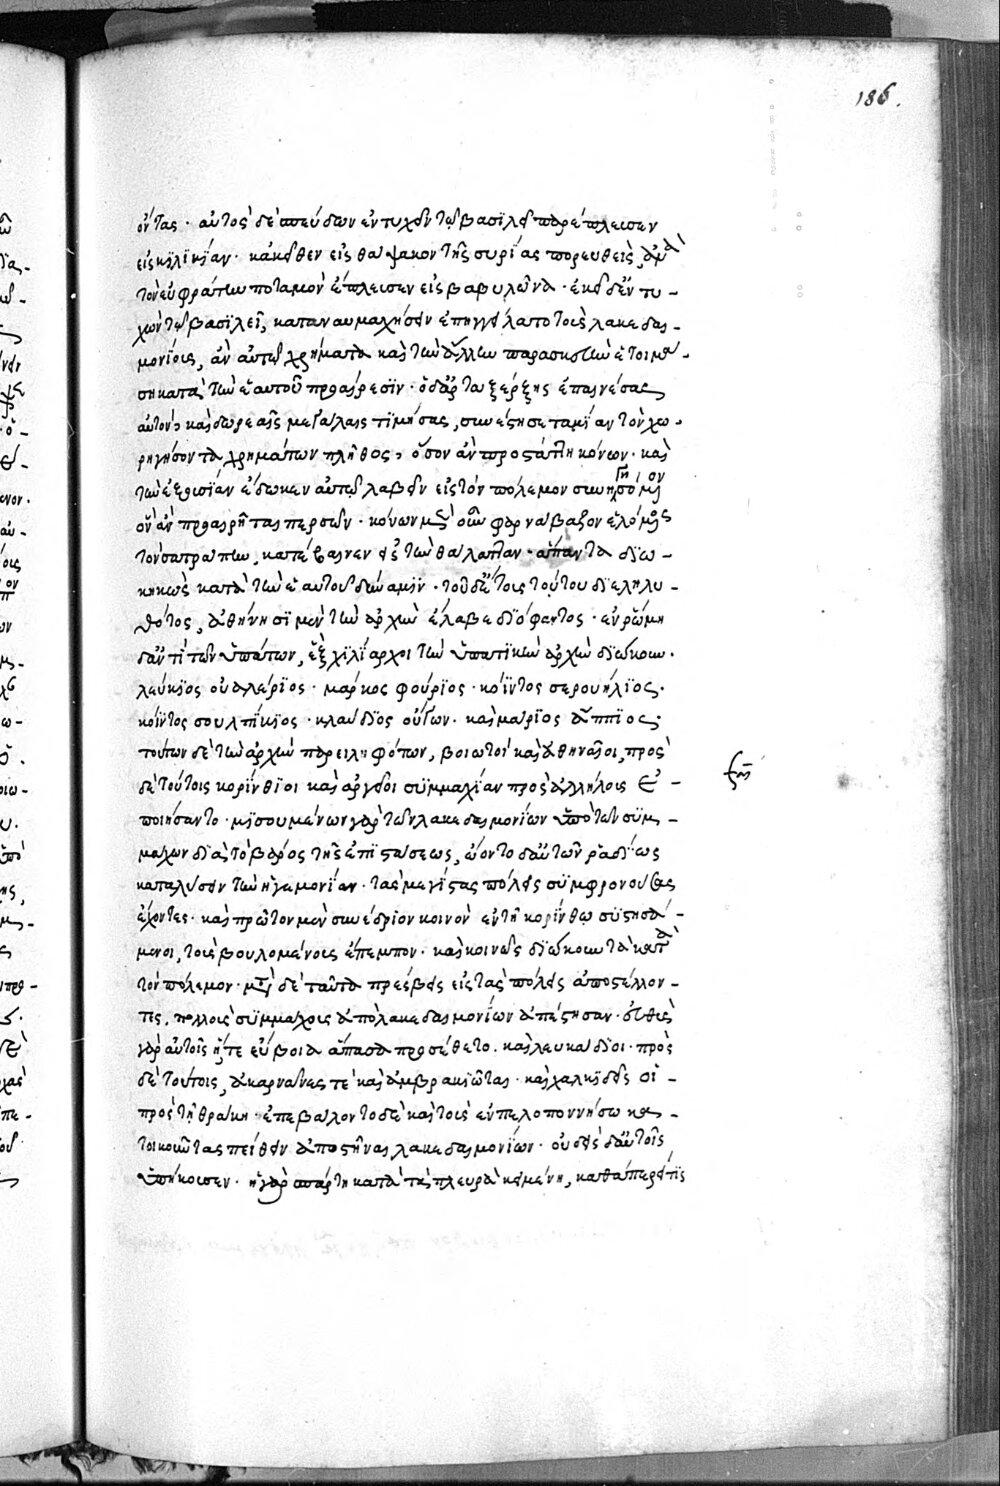 186.
ὄντας· αὐτὸς δὲ σπεύδων ἐντυχεῖν τῷ βασιλεῖ παρέπλευσεν
εἰς κιλικίαν· κἀκεῖθεν εἰς θάψακον τῆς συρίας πορευθεὶς, ἀνὰ
τὸν εὐφράτην ποταμὸν ἔπλευσεν εἰς βαβυλῶνα· ἐκεῖ δ' ἐντυ-
χὼν τῷ βασιλεῖ, καταναυμαχήσειν ἐπηγγείλατο τοὺς λακεδαι-
μονίους, ἂν αὐτῷ χρήματα καὶ τὴν ἄλλην παρασκευὴν ἑτοιμά-
ση κατὰ τὴν ἑαυτοῦ προαίρεσιν· ὁ δ' ἀρταξέρξης ἐπαινέσας
αὐτὸν, καὶ δωρεαῖς μεγάλαις τιμήσας, συνέστησε ταμίαν τὸν χο-
ρηγήσοντα χρημάτων πλῆθος, ὅσον ἂν προστάττη κόνων· καὶ
τὴν ἐξουσίαν ἔδωκεν αὐτῷ λαβεῖν εἰς τὸν πόλεμον συνηγησόμενον
ὃν ἂν προαιρῆται περσῶν· κόνων μὲν οὖν φαρνάβαζον ἑλόμενος
τὸν σατράπην, κατέβαινεν ἐπὶ τὴν θάλατταν· ἅπαντα διῳ-
κηκὼς κατὰ τὴν ἑαυτοῦ δύναμιν· τοῦ δ' ἔτους τούτου διεληλυ-
θότος, ἀθήνησι μὲν τὴν ἀρχὴν ἔλαβε διόφαντος· ἐν ῥώμη
δ' ἀντὶ τῶν ὑπάτων, ἓξ χιλίαρχοι τὴν ὑπατικὴν ἀρχὴν διῴκουν·
λεύκιος οὐαλέριος· μάρκος φούριος· κόϊντος σερουήλιος·
κόϊντος σουλπίκιος· κλαύδιος οὔγων· καὶ μάριος ἄππιος·
τούτων δὲ τὴν ἀρχὴν παρειληφότων, βοιωτοὶ καὶ ἀθηναῖοι, πρὸς
δὲ τούτοις κορίνθιοι καὶ ἀργεῖοι συμμαχίαν πρὸς ἀλλήλους ἐ-
ποιήσαντο· μισουμένων γὰρ τῶν λακεδαιμονίων ὑπὸ τῶν συμ-
μάχων διὰ τὸ βάρος τῆς ἐπιστάσεως, ᾤοντο δ' αὐτῶν ῥᾳδίως
καταλύσειν τὴν ἡγεμονίαν· τὰς μεγίστας πόλεις συμφρονούσας
ἔχοντες· καὶ πρῶτον μὲν συνέδριον κοινὸν ἐν τῇ κορίνθω συστησά-
μενοι, τοὺς βουλομένους ἔπεμπον· καὶ κοινῶς διῴκουν τὰ κατὰ
τὸν πόλεμον· μετὰ δὲ ταῦτα πρέσβεις εἰς τὰς πόλεις ἀποστέλλον-
τες, πολλοὺς συμμάχους ἀπὸ λακεδαιμονίων ἀπέστησαν· εὐθὺς
γὰρ αὐτοῖς ἥ τε εὔβοια ἅπασα προσέθετο· καὶ λευκάδιοι· πρὸς
δὲ τούτοις, ἀκαρνᾶνες τὲ καὶ ἀμβρακιῶται· καὶ χαλκιδεῖς οἱ
πρὸς τῇ θράκη· ἐπεβάλοντο δὲ καὶ τοὺς ἐν πελοποννήσω κα-
τοικοῦντας πείθειν ἀποστῆναι λακεδαιμονίων· οὐδεὶς δ' αὐτοῖς
ὑπήκουσεν· ἡ γὰρ σπάρτη κατὰ τὰ πλευρὰ κειμένη, καθάπερεί τις